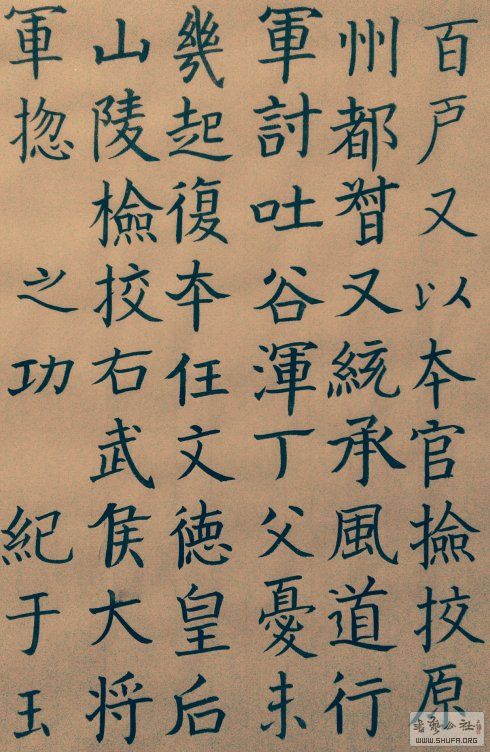 百戸又以本官撿挍原
州都督又統承風道行
軍討吐谷渾丁父憂未
幾起復本任文德皇后
山陵檢挍右武侯大将
軍揔 之功 紀于玉
书艺公社
WWW.SHUFA.ORG